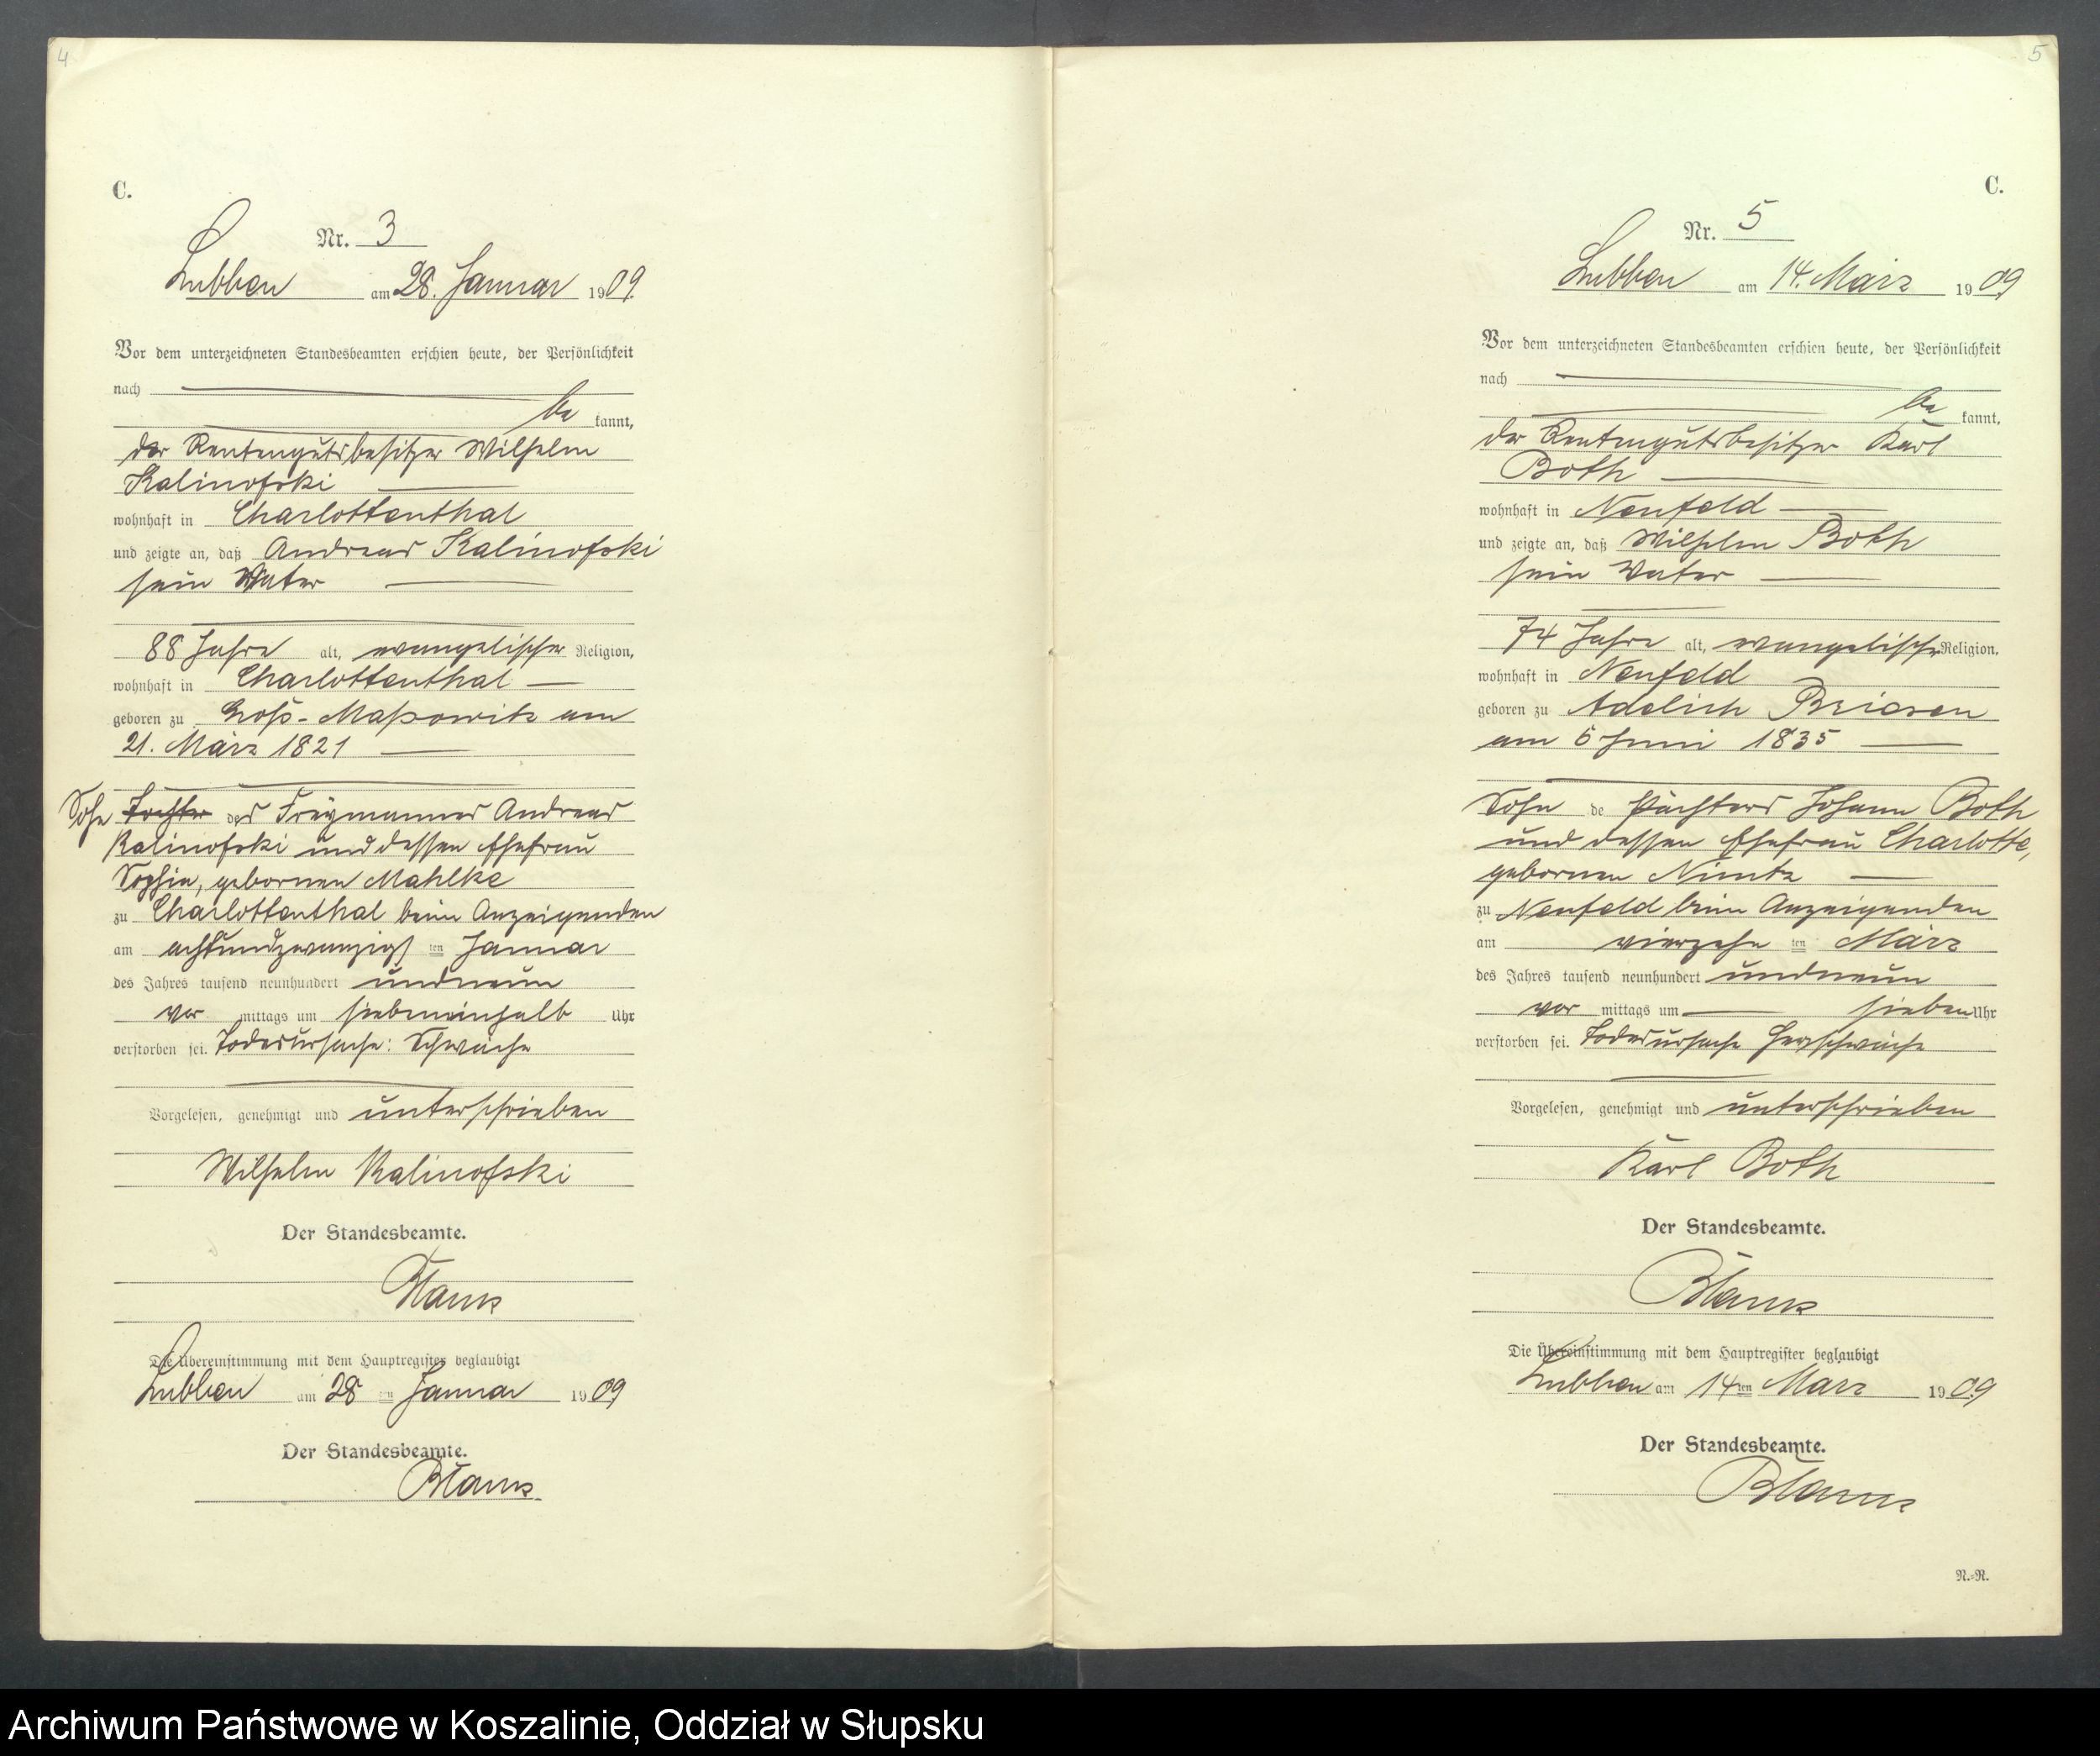 4
C.
Nr. 3
Lubben am 28. Januar 1909.
Vor dem unterzeichneten Standesbeamten erschien heute, der Persönlichkeit
nach
be kannt,
der Rentengutsbesitzer Wilhelm
Kalinofski
wohnhaft in Charlottenthal
und zeigte an, daß Andreas Kalinofski
sein Vater
88 Jahre alt, evangelischer Religion,
wohnhaft in Charlottenthal
geboren zu Groß-Massowitz am
21. März 1821
Sohn Tochter des Freymannes Andreas
Kalinofski und dessen Ehefrau
Sophie, gebornen Mahlke
zu Charlottenthal beim Anzeigenden
am achtundzwanzigsten Januar
des Jahres tausend neunhundert undneun
vor mittags um siebeneinhalb Uhr
verstorben sei. Todesursache: Schwäche
Vorgelesen, genehmigt und unterschrieben
Wilhelm Kalinofski
Der Standesbeamte.
Die Übereinstimmung mit dem Hauptregister beglaubigt
Lubben am 28 ten Januar 1909
Der Standesbeamte.
5
C.
Nr. 5
Lubben am 14. März 1909
Vor dem unterzeichneten Standesbeamten erschien heute, der Persönlichkeit
nach
be kannt,
der Rentengutsbesitzer Karl
Both
wohnhaft in Neufeld
und zeigte an, daß Wilhelm Both
sein Vater
74 Jahre alt, evangelischer Religion,
wohnhaft in Neufeld
geboren zu Adelich Briesen
am 5 Juni 1835
Sohn de Pächters Johann Both
und dessen Ehefrau Charlotte,
gebornen Nimtz
zu Neufeld beim Anzeigenden
am vierzehn ten März
des Jahres tausend neunhundert undneun
vor mittags um sieben Uhr
verstorben sei. Todesursache Herzschwäche
Vorgelesen, genehmigt und unterschrieben
Karl Both
Der Standesbeamte.
Die Übereinstimmung mit dem Hauptregister beglaubigt
Lubben am 14 ten März 1909
Der Standesbeamte.
N.-R.
Archiwum Państwowe w Koszalinie, Oddział w Słupsku